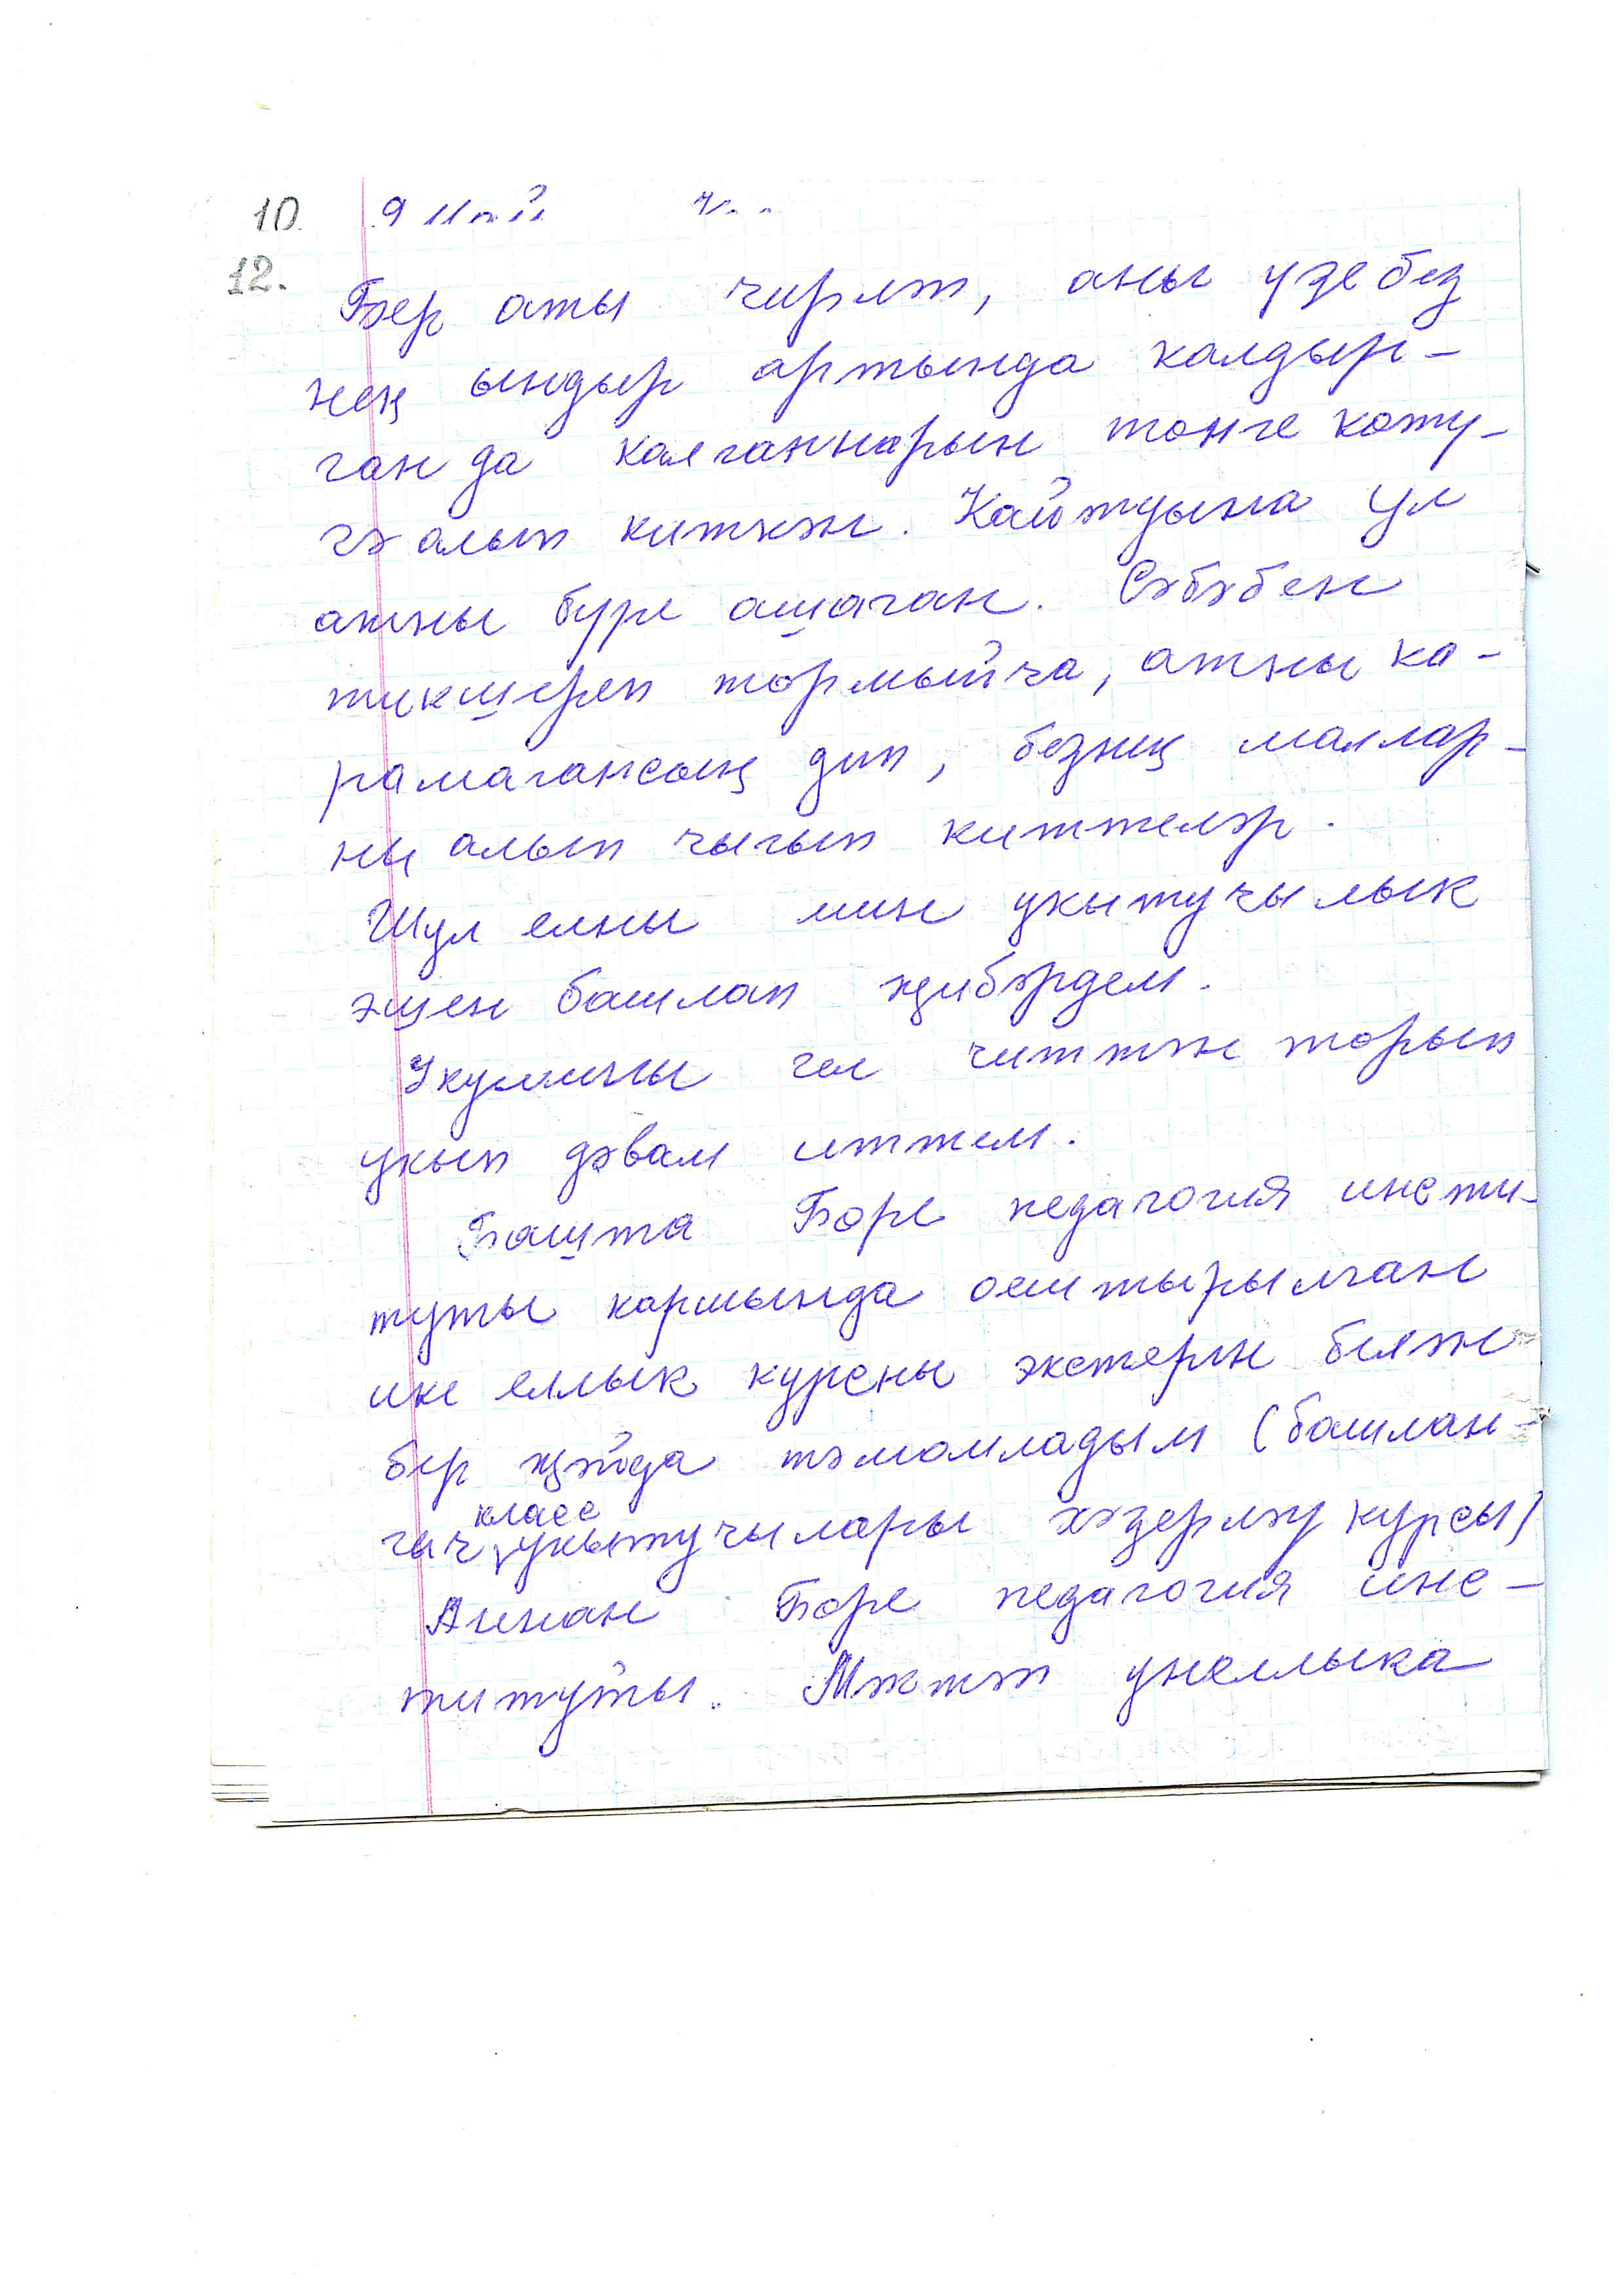 10. 9 май
12.
Бер аты чирләп, аны үзебез
нең ындыр артында калдыр-
ган да калганнарын төнге көтү-
гә алып киткән. Кайтдына ул
атны бүре ашаган. Сәбәбен
тикшереп тормыйча, атны ка-
рамагансың дип, безнең маллар-
ны алып чыгып киттеләр.
Шул елны мин укытучылык
эшен башлап җибәрдем.
Укуымны гел читтән торып
укып дәвам иттем.
Башта Бөре педагогия инсти-
туты каршында оештырылган
ике еллык курсны экстерн белән
бер җәйдә тәмамладым (башлан-
гыч класс укытучылары хәзерләү курсы)
Аннан Бөре педагогия инс-
титуты. Мәктәп унеллыка